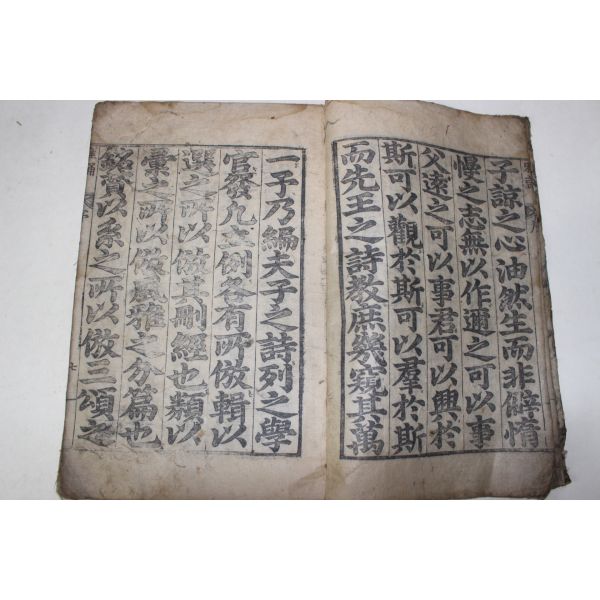 子諒之心油然生而非僻惰
慢之志無以作邇之可以事
父遠之可以事君可以興於
斯可以觀於斯可以羣於斯
而先王之詩教庶幾窺其萬
一子乃編夫子之詩列之學
官發凡立例各有所倣輯以
選之所以倣其刪經也類以
彙之所以倣風雅之分篇也
銘賛以系之所以倣三頌之